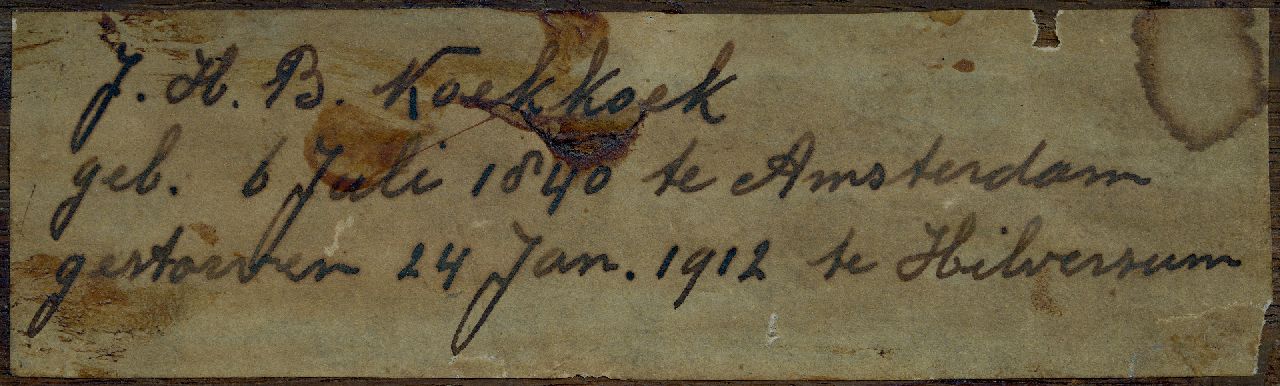 J. H. B. Koekkoek
geb. 6 Juli 1840 te Amsterdam
gestorven 24 Jan. 1912 te Hilversum